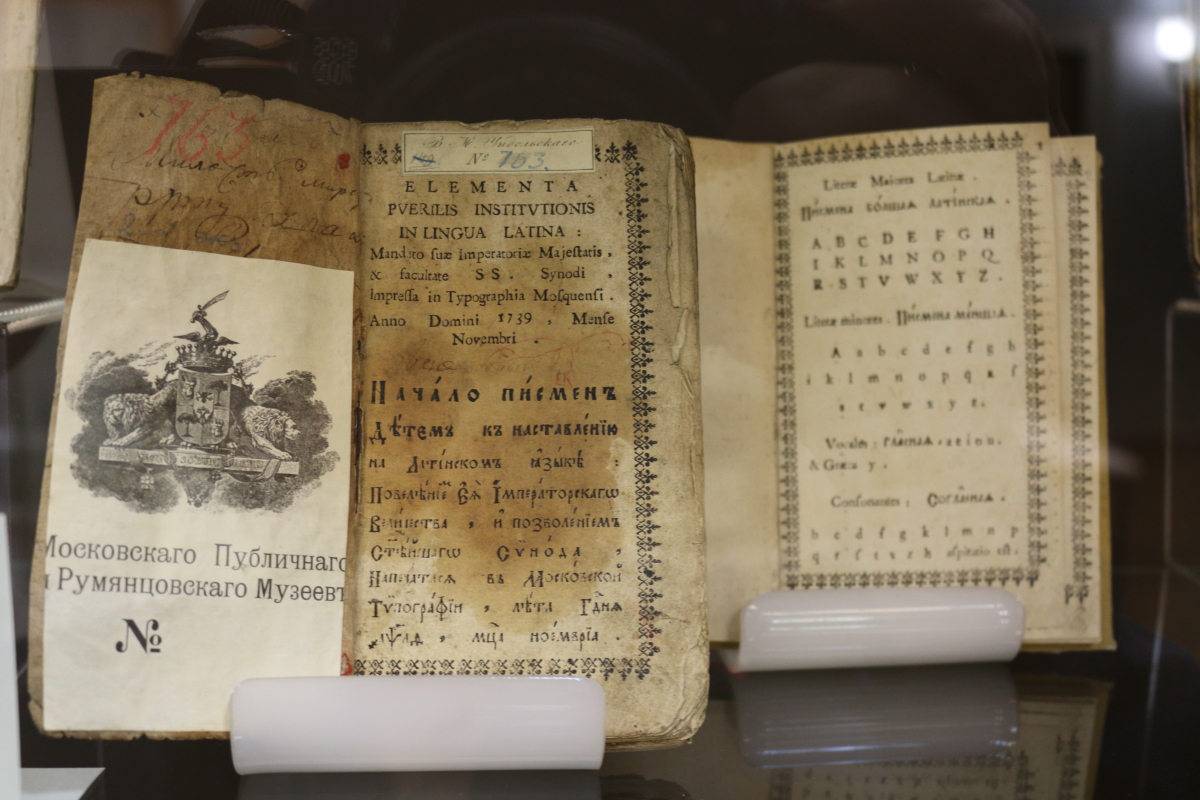 763
Московскаго Публичнаго
Румянцовскаго Музеевъ
№
№ 763.
ELEMENTA
PVERILIS INSTITVTIONIS
IN LINGUA LATINA :
Mandato suæ Imperatoriæ Majestatis,
& facultate SS. Synodi ,
Impressa in Typographia Mosquensi .
Anno Domini 1739 , Mense
Novembri .
Нача́ло пи́сменъ
Дѣ́темъ къ наставле́нїю
на Лати́нскомъ ѩзы́кѣ :
Повелѣ́нїемъ Еѧ̀ Імпера́торскагѡ
Вели́чества , и҆ позволе́нїемъ
Ст҃ѣ́йшагѡ Сѷно́да ,
Напеча́тасѧ въ Моско́вской
Тѷпогра́фїи , лѣ́та Гд҇нѧ
҂аѱл҃ѳ , мц҇а ное́мврїа .
Literæ Maiores Latinæ .
Пи́смена бо́лшаѧ лати́нскаѧ .
A B C D E F G H
I K L M N O P Q
R S T V W X Y Z .
Literæ minores . Пи́смена ме́ншаѧ .
A a b c d e f g h
i k l m n o p q ſ
s t v w x y z .
Vocales : гла́снаѧ . a e i o u .
& Græca y .
Consonantes : Согла́снаѧ .
b c d f g k l m n p
q r ſ t x z h aspiratio est .